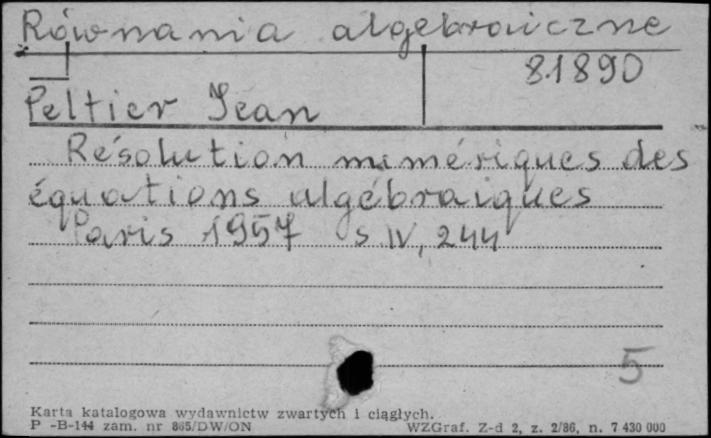 Równania algebraiczne
81890
Peltier Jean
Résolution numériques des
équations algébraiques
Paris 1957 s IV, 244
5
Karta katalogowa wydawnictw zwartych i ciągłych.
P -B-144 zam. nr 865/DW/ON WZGraf. Z-d 2, z. 2/86, n. 7 430 000